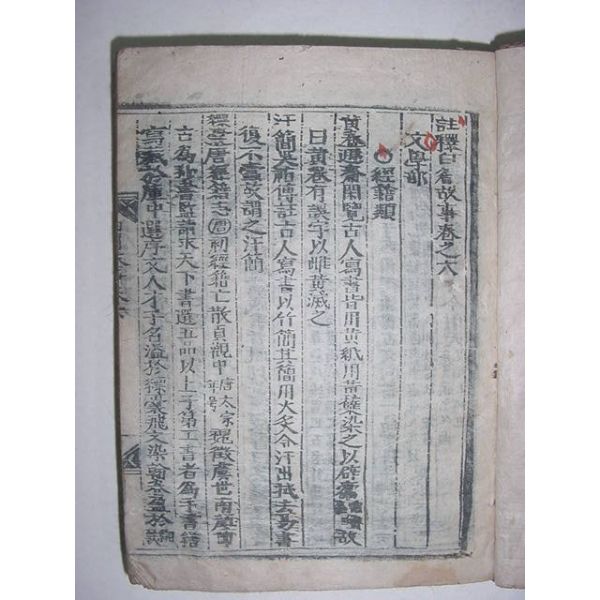 註釋白眉故事卷之六
文學部
經籍類
黃卷遯齋閑覽古人寫書皆用黃紙用黃蘗染之以辟蠹故
曰黃卷有誤字以雌黃滅之
汗簡吳祐傳註古人寫書以竹簡其簡用火炙令汗出拭去易書
復不蠹故謂之汗簡
唐經籍志唐初經籍亡散貞觀中唐太宗年号魏徵虞世南
古為秘書監請求天下書選五品以上子弟工書者為手書籍
庫中選序文人才子名溢於飛文染翰卷盈於